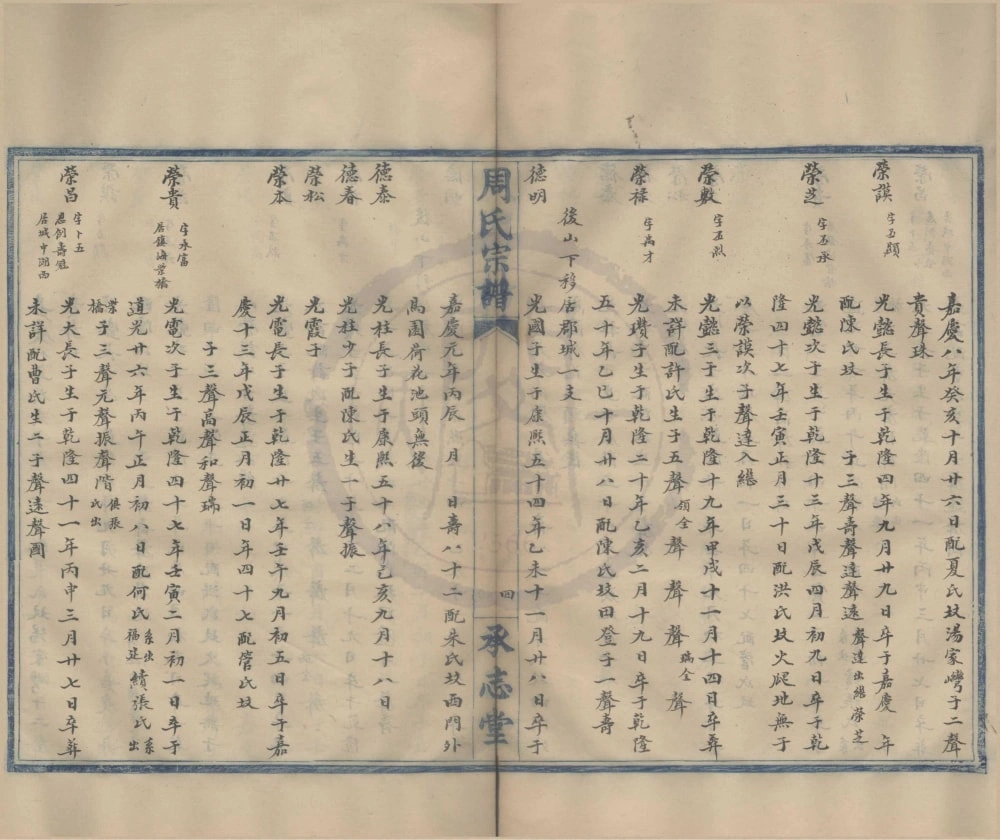 嘉慶八年癸亥十月廿六日配夏氏坟湯家灣子二聲
貴聲珠
榮謨
字丕顯
光懿長子生于乾隆四年九月廿九日卒于嘉慶 年
配陳氏坟 子三聲壽聲達聲遠
聲達出繼榮芝
榮芝
字丕承
光懿次子生于乾隆十三年戊辰四月初九日卒于乾
隆四十七年壬寅正月三十日配洪氏坟火腿地無子
以榮謨次子聲達入繼
榮數
字丕烈
光懿三子生于乾隆十九年甲戌十一月十四日卒葬
未詳配許氏生子五聲 領全 聲 聲 聲 瑞全 聲
榮祿
字為才
光瓚子生于乾隆二十年乙亥二月十九日卒于乾隆
五十年乙巳十月廿八日配陳氏坟田登子一聲壽
後山下移居郡城一支
德明
光國子生于康熙五十四年乙未十一月廿八日卒于
周氏宗譜
四
承志堂
嘉慶元年丙辰 月 日壽八十二配朱氏坟西門外
馬園荷花池頭無後
德泰
光柱長子生于康熙五十八年己亥九月十八日
德春
光柱少子配陳氏生一子聲振
榮松
光霞子
榮本
光電長子生于乾隆廿七年壬午九月初五日卒于嘉
慶十三年戊辰正月初一日年四十七配管氏坟
子三聲高聲和聲瑞
榮貴
字永富
居鎮海紫橋
光電次子生于乾隆四十七年壬寅二月初一日卒于
道光廿六年丙午正月初八日配何氏 系出福建 續張氏 系出
紫橋 子三聲元聲振聲階 俱張氏出
榮昌
字卜五
恩例壽冠
居城中湖西
光大長子生于乾隆四十一年丙申三月廿七日卒葬
未詳配曹氏生二子聲遠聲國